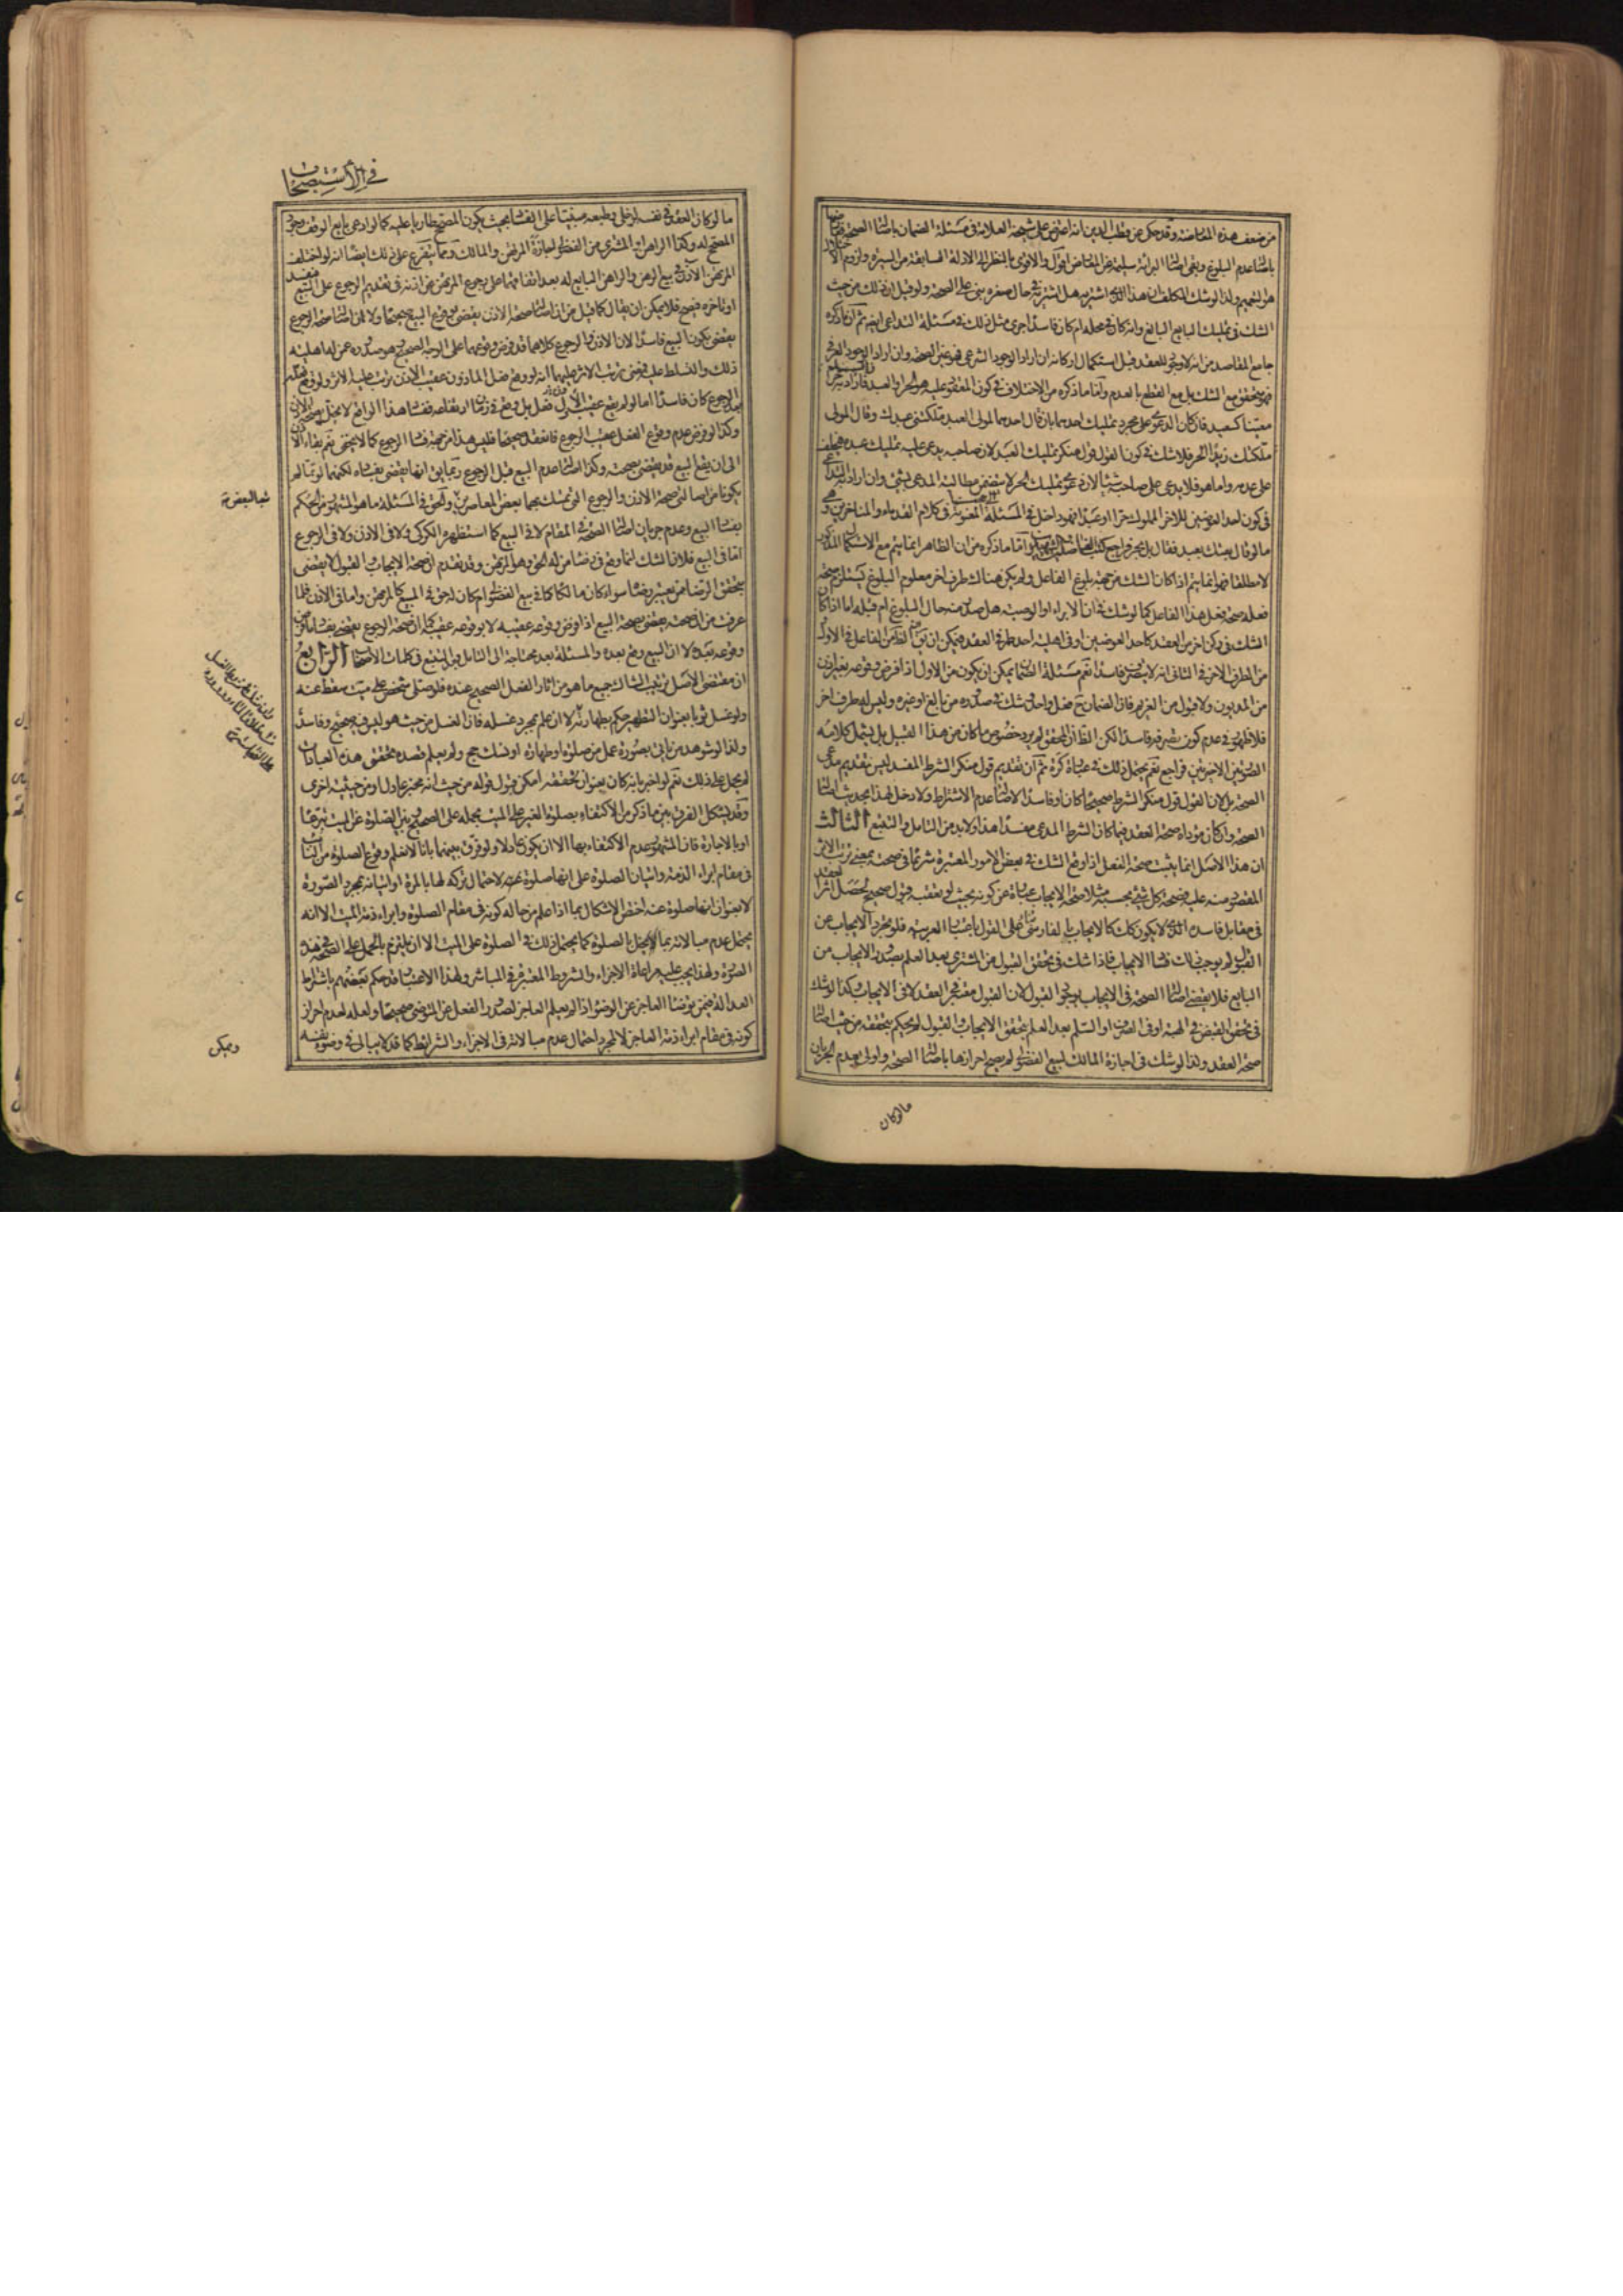 من ضعف هذه المعارضة وقد حكى عن قطب الدين انه اعترض على شيخه العلامة فى مسئلة الضمان باصالة الصحة
باصالة عدم البلوغ وبقى اصالة البرائة سليمة عن المعارض اقول والاقوى بالنظر الى الادلة السابقة من السيرة ولزوم
هو التعميم ولذا لو شك المكلف ان هذا الذى اشتراه هل اشتراه فى حال صغره بنى على الصحة ولو قيل ان ذلك من حيث
الشك فى تمليك البايع البالغ وانه كان فى محله ام كان فاسدا جرى مثل ذلك فى مسئلة التداعى ايضا ثم ان ما ذكره
جامع المقاصد من انه لا وجود للعقد قبل استكمال اركانه ان اراد الوجود الشرعى فهو عين الصحة وان اراد الوجود العرفى
فهو متحقق مع الشك بل مع القطع بالعدم واما ما ذكره من الاختلاف فى كون المعقود عليه هو الحر او العبد
معينا كسعيد فان كان الدعوى على مجرد تمليك احدهما بان قال احدهما للمولى العبد ملكتنى عبدك وقال المولى
ملكتك زيدا الحر فلا شك فى كون القول قول منكر تمليك العبد لان صاحبه يدعى عليه تمليك عبده فيحلف
على عدمه واما هو فلا يدعى على صاحبه شيئا لان دعوى تمليك الحر لا يتضمن مطالبة المدعى بشئ وان اراد
فى كون احد العوضين للاخر المملوك حرا او عبدا فهو داخل فى المسئلة المعنونة فى كلام القدماء والمتاخرين
ما لو قال بعتك بعبد فقال بل بحر فراجع كتب واما ما ذكره من ان الظاهر انما يتم مع الاستكمال المذكور
لا مطلقا فهو انما يتم اذا كان الشك من جهة بلوغ الفاعل ولم يكن هناك طرف اخر معلوم البلوغ يستلزم صحة
فعله صحة فعل هذا الفاعل كما لو شك فى ان الابراء او الوصية هل صدر منه حال البلوغ ام قبله اما اذا كان
الشك فى ركن اخر من العقد كاحد العوضين او فى اهلية احد طرفى العقد فيمكن ان الظاهر من الفاعل فى الاول
من الطرف الاخر فى الثانى انه لا يتصرف فاسدا نعم مسئلة الضمان يمكن ان يكون من الاول اذا فرض وقوعه بغير اذن
من المديون ولا قبول من الغريم فان الضمان ح فعل واحد شك فى صدوره من بالغ او غيره وليس له طرف اخر
فلا ظهور فى عدم كون تصرفه فاسدا لكن الظ ان المحقق لم يرد خصوص ما كان من هذا القبيل بل يشمل كلامه
الصورتين الاخيرتين فراجع نعم يحتمل ذلك فى عبارة كره ثم ان تقديم قول منكر الشرط المفسد ليس لتقديم مدعى
الصحة بل لان القول قول منكر الشرط صحيحا كان او فاسدا لاصالة عدم الاشتراط ولا دخل لهذا بحديث اصالة
الصحة وان كان مؤداه صحة العقد فيما كان الشرط المدعى مفسدا هذا ولا بد من التامل والتتبع الثالث
ان هذا الاصل انما يثبت صحة الفعل اذا وقع الشك فى بعض الامور المعتبرة شرعا فى صحته بمعنى ترتب الاثر
المقصود منه عليه فصحة كل شئ بحسبه مثلا صحة الايجاب عبارة عن كونه بحيث لو تعقبه قبول صحيح لحصل اثر العقد
فى مقابل فاسده الذى لا يكون كك كالايجاب بالفارسى بناء على القول باعتبار العربية فلو تجرد الايجاب عن
القبول لم يوجب ذلك فساد الايجاب فاذا شك فى تحقق القبول من المشترى بعد العلم بصدور الايجاب من
البايع فلا يقضى اصالة الصحة فى الايجاب بوجود القبول لان القبول معتبر فى العقد لا فى الايجاب وكذا لو شك
فى تحقق القبض فى الهبة او فى الصرف او السلم بعد العلم بتحقق الايجاب والقبول لم يحكم بتحققه من حيث اصالة
صحة العقد ولذا لو شك فى اجازة المالك لبيع الفضولى لم يصح احرازها باصالة الصحة واولى بعدم الجريان
ما لو كان
فى الاستصحاب
ما لو كان العقد فى نفسه لو خلى وطبعه مبنيا على الفساد بحيث يكون المصحح طاريا عليه كما لو ادعى بايع الوقف وجود
المصحح له وكذا الراهن او المشترى من الفضولى اجازة المرتهن والمالك ومما يتفرع على ذلك ايضا انه لو اختلف
المرتهن الاذن فى بيع الرهن والراهن البايع له بعد اتفاقهما على رجوع المرتهن عن اذنه فى تقديم الرجوع على البيع فيفسد
او تاخره فيصح فلا يمكن ان يقال كما قيل من ان اصالة صحة الاذن يقضى بوقوع البيع صحيحا ولا ان اصالة صحة الرجوع
يقضى بكون البيع فاسدا لان الاذن والرجوع كلاهما قد فرض وقوعهما على الوجه الصحيح وهو صدوره عمن له اهلية
ذلك والتسلط عليه فمعنى ترتب الاثر عليهما انه لو وقع فعل الماذون عقيب الاذن ترتب عليه الاثر ولو وقع فعله
بعد الرجوع كان فاسدا اما لو لم يقع عقيب الاول فعل بل وقع فى زمان ارتفاعه ففساد هذا الواقع لا يخل بصحة الاذن
وكذا لو فرض عدم وقوع الفعل عقيب الرجوع فانعقد صحيحا فليس هذا من جهة فساد الرجوع كما لا يخفى نعم بقاء الاذن
الى ان يقع البيع قد يقضى بصحته وكذا اصالة عدم البيع قبل الرجوع ربما يق انها تقضى بفساده لكنهما لو تما لم
يكونا من اصالتى صحة الاذن والرجوع التى تمسك بهما بعض المعاصرين والحق فى المسئلة ما هو المشهور من الحكم
بفساد البيع وعدم جريان اصالة الصحة فى المقام لا فى البيع كما استظهره الكركى ولا فى الاذن ولا فى الرجوع
اما فى البيع فلان الشك انما وقع فى رضا من له الحق وهو المرتهن وقد تقدم ان صحة الايجاب والقبول لا يقضى
بتحقق الرضا ممن يعتبر رضاه سواء كان مالكا كما فى بيع الفضولى ام كان له حق فى المبيع كالمرتهن واما فى الاذن فلما
عرفت من ان صحته يقضى بصحة البيع اذا فرض وقوعه عقيبه لا بوقوعه عقيبه كما ان صحة الرجوع يقضى بفساد ما فرض
وقوعه بعده لا ان البيع وقع بعده والمسئلة بعد محتاجة الى التامل بعد التتبع فى كلمات الاصحاب الرابع
ان مقتضى الاصل ترتيب الشاك جميع ما هو من اثار الفعل الصحيح عنده فلو صلى شخص على ميت سقط عنه
ولو غسل ثوبا بعنوان التطهير حكم بطهارته لا ان علم بمجرد غسله فان الغسل من حيث هو ليس فيه صحيح وفاسد
ولذا لو شوهد من ياتى بصورة عمل من صلوة او طهارة او نسك حج ولم يعلم قصده تحقق هذه العبادات
لم يحمل على ذلك نعم لو اخبر بانه كان بعنوان تحققه امكن قبول قوله من حيث انه مخبر عادل او من حيثية اخرى
وقد يشكل الفرق بين ما ذكر من الاكتفاء بصلوة الغير على الميت بحمله على الصحيح وبين الصلوة عن الميت تبرعا
او بالاجارة فان المشهور عدم الاكتفاء بها الا ان يكون عادلا ولو فرق بينهما بانا لا نعلم وقوع الصلوة من النائب
فى مقام ابراء الذمة واتيان الصلوة على انها صلوة عنه لاحتمال تركه لها بالمرة او اتيانه بمجرد الصورة
لا بعنوان انها صلوة عنه اختص الاشكال بما اذا علم من حاله كونه فى مقام الصلوة وابراء ذمة الميت الا انه
يحتمل عدم مبالاته بما يخل بالصلوة كما يحتمل ذلك فى الصلوة على الميت الا ان يلتزم بالحمل على الصحة فى هذه
الصورة ولهذا يجب عليه مراعاة الاجزاء والشروط المعتبرة فى المباشر ولهذا الاعتبار قد حكم بعضهم باشتراط
العدالة فيمن يوضئ العاجز عن الوضوء اذا لم يعلم العاجز لصدور الفعل عن الموضى صحيحا ولعله لعدم احراز
كونه فى مقام ابراء ذمة العاجز لا لمجرد احتمال عدم مبالاته فى الاجزاء والشرائط كما قد لا يبالى فى وضوء نفسه
ويمكن